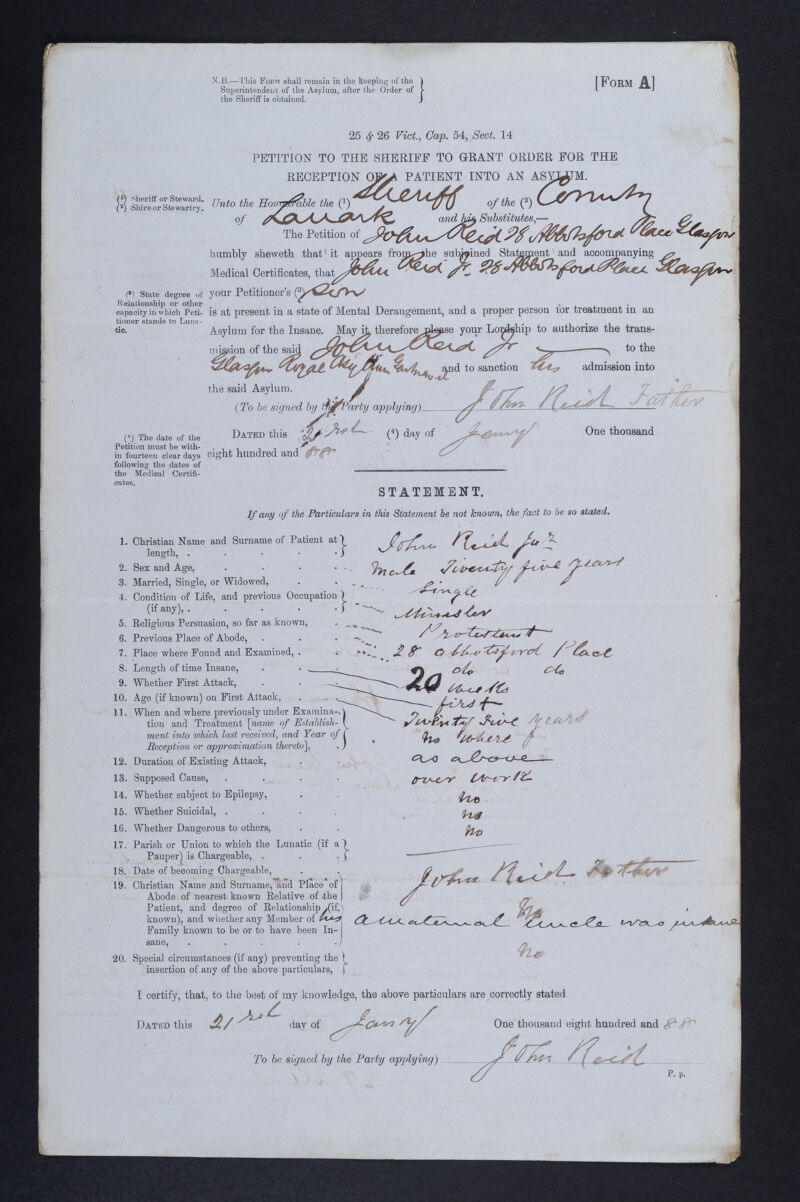 N.B.—This Form shall remain in the keeping of the
Superintendent of the Asylum, after the Order of
the Sheriff is obtained.
[Form A]
25 & 26 Vict., Cap. 54, Sect. 14
PETITION TO THE SHERIFF TO GRANT ORDER FOR THE
RECEPTION OF A PATIENT INTO AN ASYLUM.
(1) Sheriff or Steward.
(2) Shire or Stewartry.
Unto the Honourable the (1) Sheriff of the (2) County
of Lanark and his Substitutes,—
The Petition of John Reid 28 Abbotsford Place Glasgow
humbly sheweth that it appears from the subjoined Statement and accompanying
Medical Certificates, that John Reid Jr. 28 Abbotsford Place Glasgow
(3) State degree of
Relationship or other
capacity in which Peti-
tioner stands to Luna-
tic.
your Petitioner's (3) son
is at present in a state of Mental Derangement, and a proper person for treatment in an
Asylum for the Insane. May it therefore please your Lordship to authorize the trans-
mission of the said John Reid Jr to the
Glasgow Royal Asylum Gartnavel and to sanction his admission into
the said Asylum.
(To be signed by the Party applying) John Reid Father
(4) The date of the
Petition must be with-
in fourteen clear days
following the dates of
the Medical Certifi-
cates.
Dated this 21rst (4) day of Jany One thousand
eight hundred and 88
STATEMENT.
If any of the Particulars in this Statement be not known, the fact to be so stated.
1. Christian Name and Surname of Patient at
length, . John Reid Junr
2. Sex and Age, Male Twenty five years
3. Married, Single, or Widowed, Single
4. Condition of Life, and previous Occupation
(if any), . Minister
5. Religious Persuasion, so far as known, Protestant
6. Previous Place of Abode, . 28 abbotsford Place
7. Place where Found and Examined, . do do
8. Length of time Insane, 20 weeks
9. Whether First Attack, first
10. Age (if known) on First Attack, Twenty five years
11. When and where previously under Examina-
tion and Treatment [name of Establish-
ment into which last received, and Year of
Reception or approximation thereto], No where
12. Duration of Existing Attack, as above
13. Supposed Cause, over work
14. Whether subject to Epilepsy, no
15. Whether Suicidal, . no
16. Whether Dangerous to others, no
17. Parish or Union to which the Lunatic (if a
Pauper) is Chargeable, .
18. Date of becoming Chargeable,
19. Christian Name and Surname, and Place of
Abode of nearest known Relative of the
Patient, and degree of Relationship (if
known), and whether any Member of his
Family known to be or to have been In-
sane, John Reid Father
No
a maternal uncle was insane
20. Special circumstances (if any) preventing the
insertion of any of the above particulars, No
I certify, that, to the best of my knowledge, the above particulars are correctly stated
Dated this 21rst day of Jany One thousand eight hundred and 88
To be signed by the Party applying) John Reid
P. p.